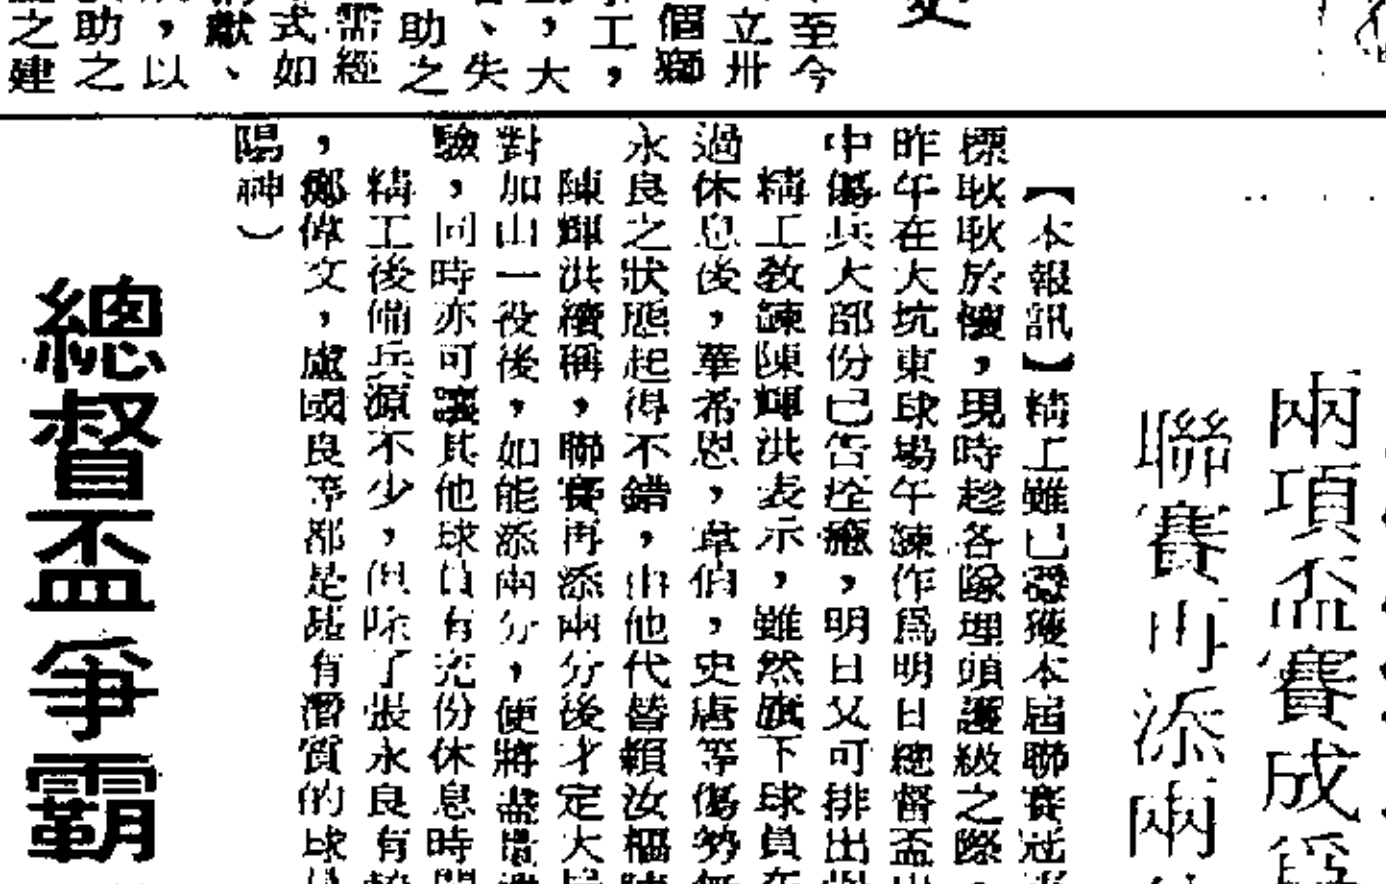 至今
立卅
個獅
工，
，大
、失
助之
需經
式如
獻、
，以
助之
之建
兩項盃賽成
聯賽再添兩
【本報訊】精工雖已發獲本屆聯賽冠
標耿耿於懷，現時趁各隊埋頭護級之際，
昨午在大坑東球場午練作爲明日總督盃
中傷兵大部份已告痊癒，明日又可排出
精工教練陳輝洪表示，雖然旗下球員在
過休息後，華希恩，韋伯，史唐等傷勢
永良之狀態起得不錯，由他代替賴汝樞
陳輝洪續稱，聯賽再添兩分後才定大
對加山一役後，如能添兩分，便將盡量
驗，同時亦可讓其他球員有充份休息時
精工後備兵源不少，但除了張永良有
，鄭偉文，盧國良等都是甚有潛質的球
陽神）
總督盃爭霸